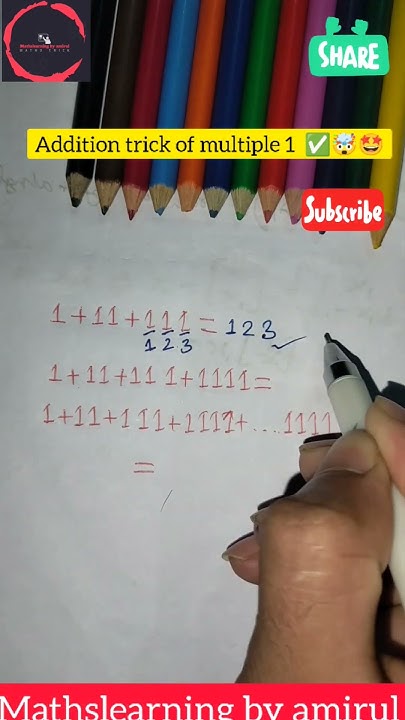 Mathslearning by amirul
SHARE
Addition trick of multiple 1 ✅🤯🤩
Subscribe
1+11+111=123
1 2 3
1+11+111+1111=
1+11+111+1111+....1111
=
Mathslearning by amirul